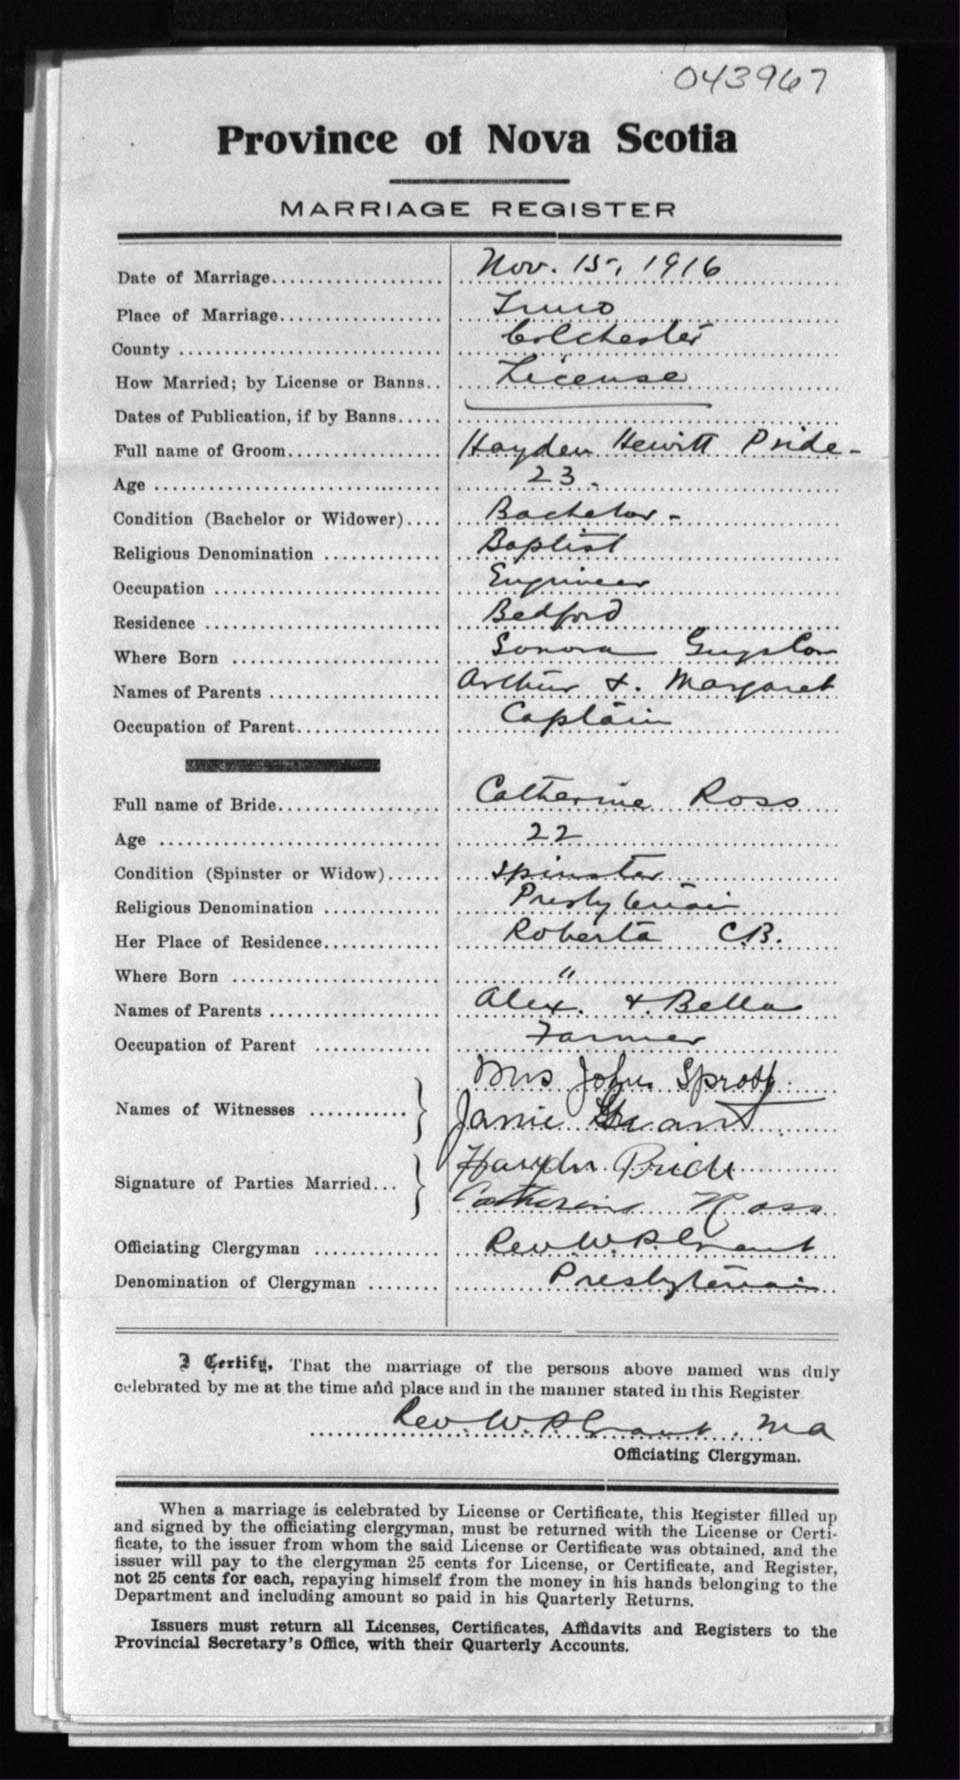 043967
Province of Nova Scotia
MARRIAGE REGISTER
Date of Marriage Nov. 15, 1916
Place of Marriage Truro
County Colchester
How Married; by License or Banns License
Dates of Publication, if by Banns
Full name of Groom Hayden Hewitt Pride
Age 23.
Condition (Bachelor or Widower) Bachelor
Religious Denomination Baptist
Occupation Engineer
Residence Bedford
Where Born Sonora Guys Co
Names of Parents Arthur & Margaret
Occupation of Parent Captain
Full name of Bride Catherine Ross
Age 22
Condition (Spinster or Widow) Spinster
Religious Denomination Presbyterian
Her Place of Residence Roberta C.B.
Where Born "
Names of Parents Alex. & Bella
Occupation of Parent Farmer
Names of Witnesses Mrs John Sprott
Janie Grant
Signature of Parties Married Hayden Pride
Catherine Ross
Officiating Clergyman Rev. W. P. Grant
Denomination of Clergyman Presbyterian
I Certify, That the marriage of the persons above named was duly
celebrated by me at the time and place and in the manner stated in this Register
Rev. W. P. Grant. MA
Officiating Clergyman.
When a marriage is celebrated by License or Certificate, this Register filled up
and signed by the officiating clergyman, must be returned with the License or Certi-
ficate, to the issuer from whom the said License or Certificate was obtained, and the
issuer will pay to the clergyman 25 cents for License, or Certificate, and Register,
not 25 cents for each, repaying himself from the money in his hands belonging to the
Department and including amount so paid in his Quarterly Returns.
Issuers must return all Licenses, Certificates, Affidavits and Registers to the
Provincial Secretary's Office, with their Quarterly Accounts.